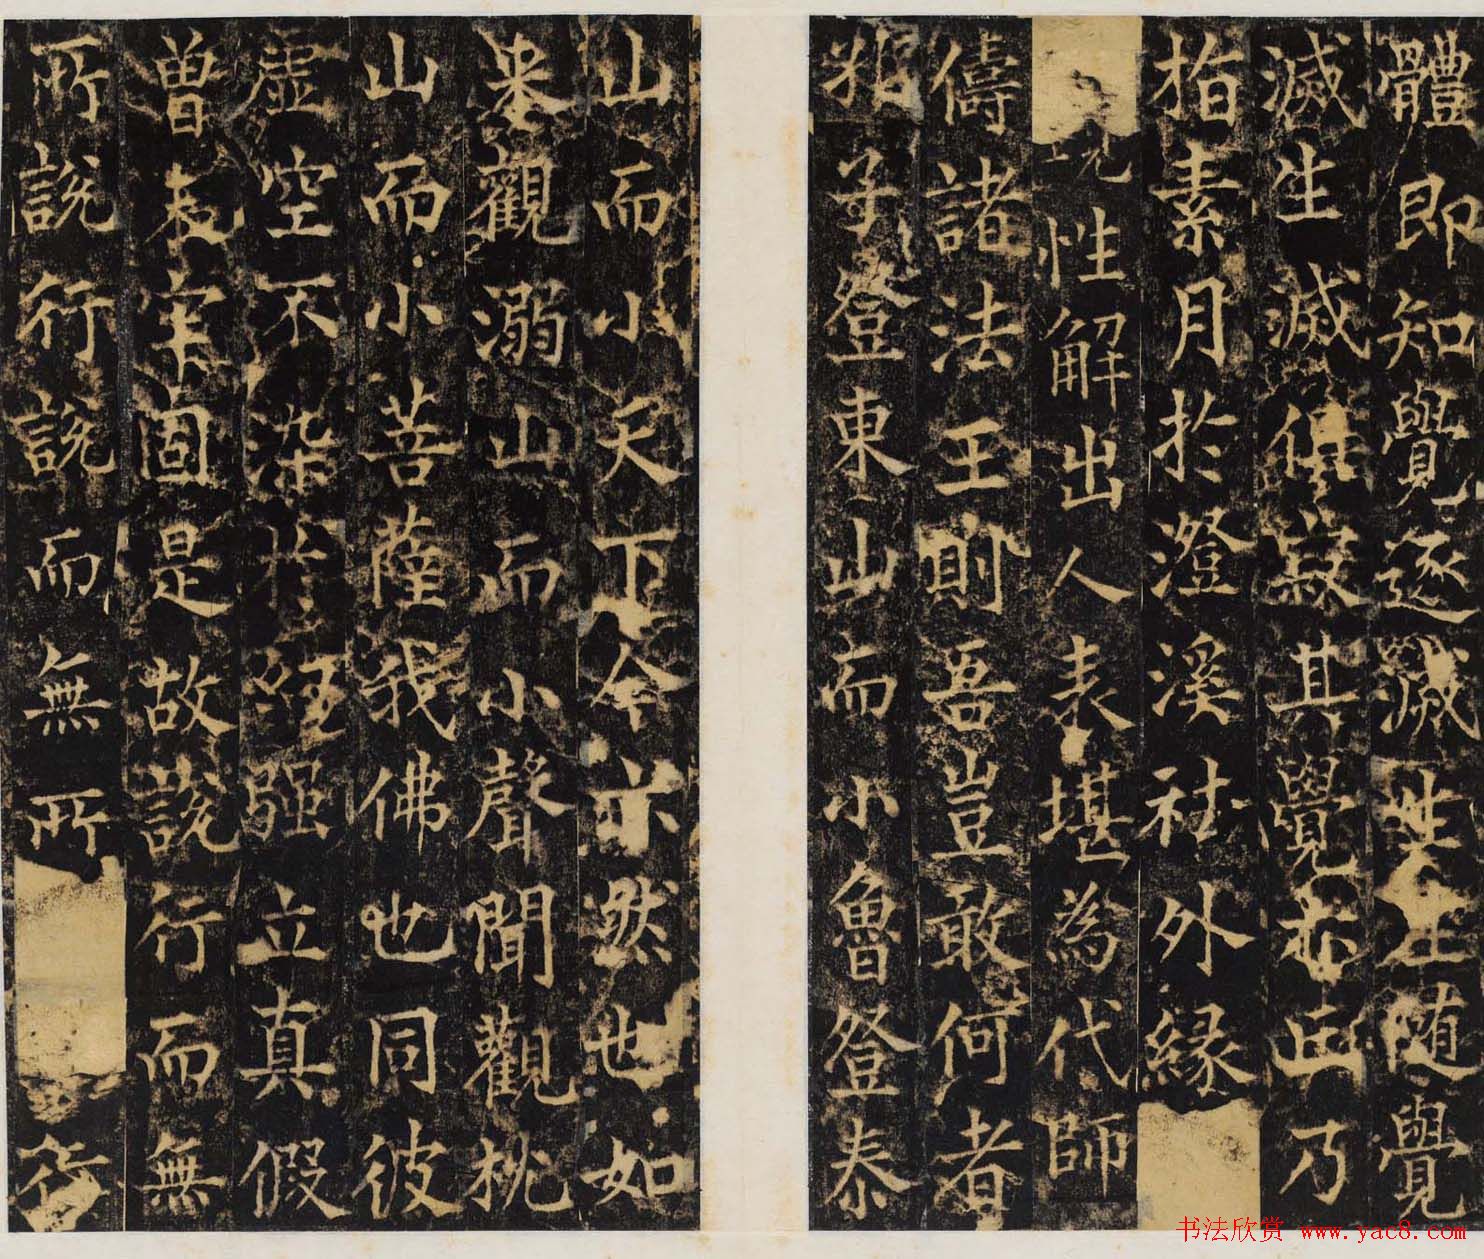 體即知覺逐滅生生隨覺
滅生滅俱寂其覺亦正乃
指素月於澄溪袪外緣
見性解出人表堪為代師
儔諸法王則吾豈敢何者
子登東山而小魯登泰
山而小天下今亦然也如
觀溺山而小聲聞觀枕
山而小菩薩我佛也同彼
虛空不染強立真假
曾未牢固是故說行而無
所說行說而無所行
书法欣赏 www.yac8.com